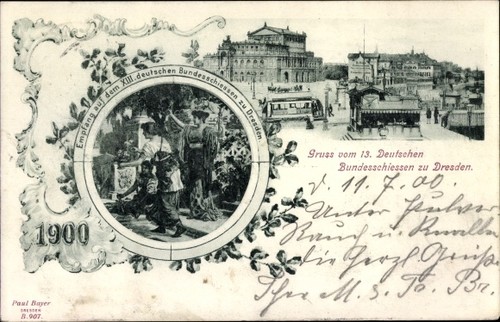 Empfang auf dem XIII. deutschen Bundesschiessen zu Dresden.
Gruss vom 13. Deutschen
Bundesschiessen zu Dresden.
d. 11.7.00.
Unter Pulver
Rauch und Knallen
die herzl. Grüße
1900
Paul Bayer
DRESDEN
B. 907.